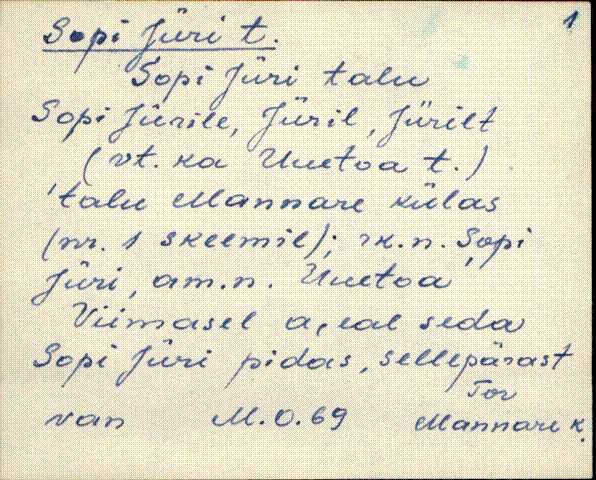 1
Sopi Jüri t.
Sopi Jüri talu
Sopi Jürile, Jüril, Jürilt
(vt. ka Uuetoa t.)
'talu Mannare külas
(nr. 1 skeemil); rk.n. Sopi
Jüri, am.n. Uuetoa
Viimasel a,eal seda
Sopi Jüri pidas, sellepärast
Tor
van M.O.69 Mannare k.